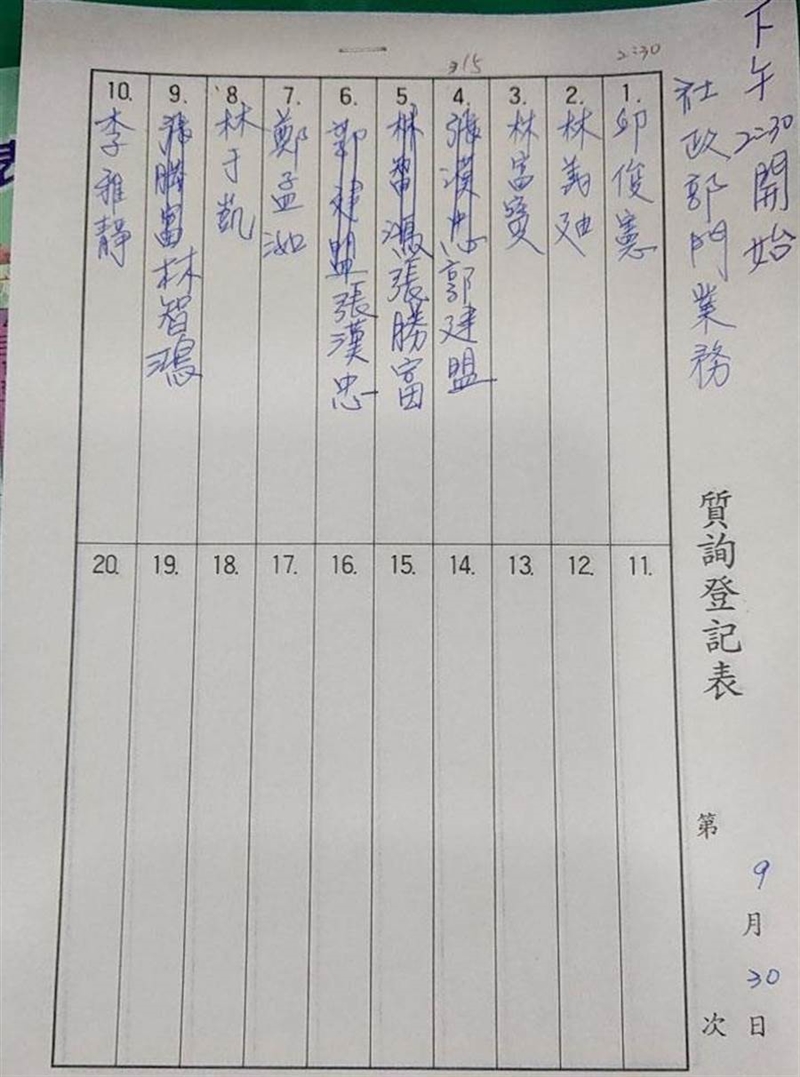 下午2:30開始
社政部門業務
質詢登記表
第 次
9月30日
2:30
315
一
1. 邱俊憲
2. 林義迪
3. 林富寶
4. 張漢忠郭建盟
5. 林智鴻張勝富
6. 郭建盟張漢忠
7. 鄭孟洳
8. 林于凱
9. 張勝富林智鴻
10. 李雅靜
11.
12.
13.
14.
15.
16.
17.
18.
19.
20.